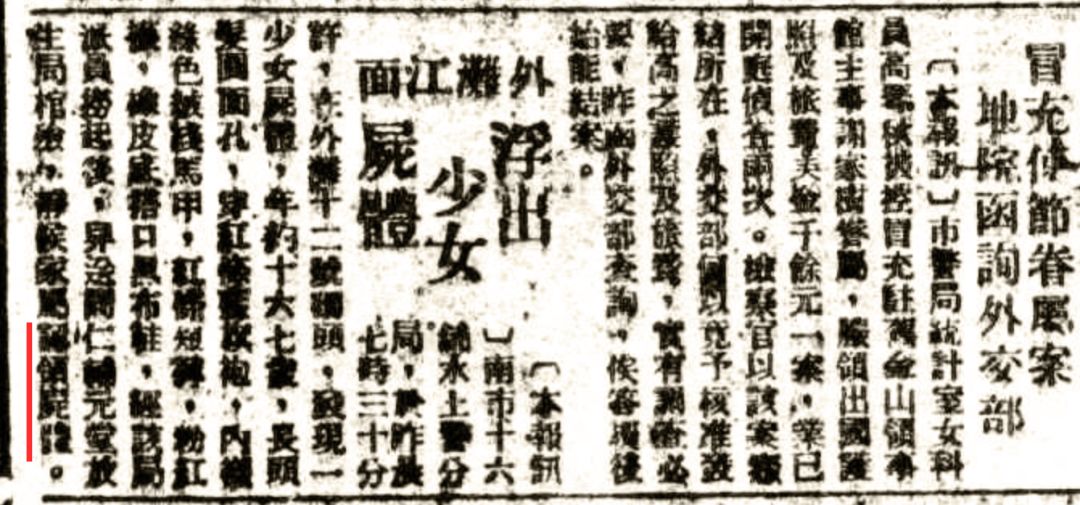 冒充使節眷屬案
地院函詢外交部
〔本報訊〕市警局統計室女科
員高 被 控冒充駐舊金山領事
館主事謝家 眷屬，騙領出國護
照及旅費美金千餘元一案，業已
開庭偵查兩次。檢察官以該案癥
結所在，外交部何以竟予核准發
給高之護照及旅費，實有調查必
要，昨函外交部查詢，俟答覆後
始能結案。
外灘江面
浮出
少女
屍體
〔本報訊
〕南市十六
舖水上警分
局，於昨晨
七時三十分
許，在外灘十二號碼頭，發現一
少女屍體，年約十六七歲，長頭
髮圓面孔，穿紅條 布袍，內襯
綠色絨線馬甲，紅 短褲，粉紅
襪，橡皮底搭口黑布鞋，經該局
派員撈起後，舁送同仁輔元堂放
生局棺殮，靜候家屬認領屍體。